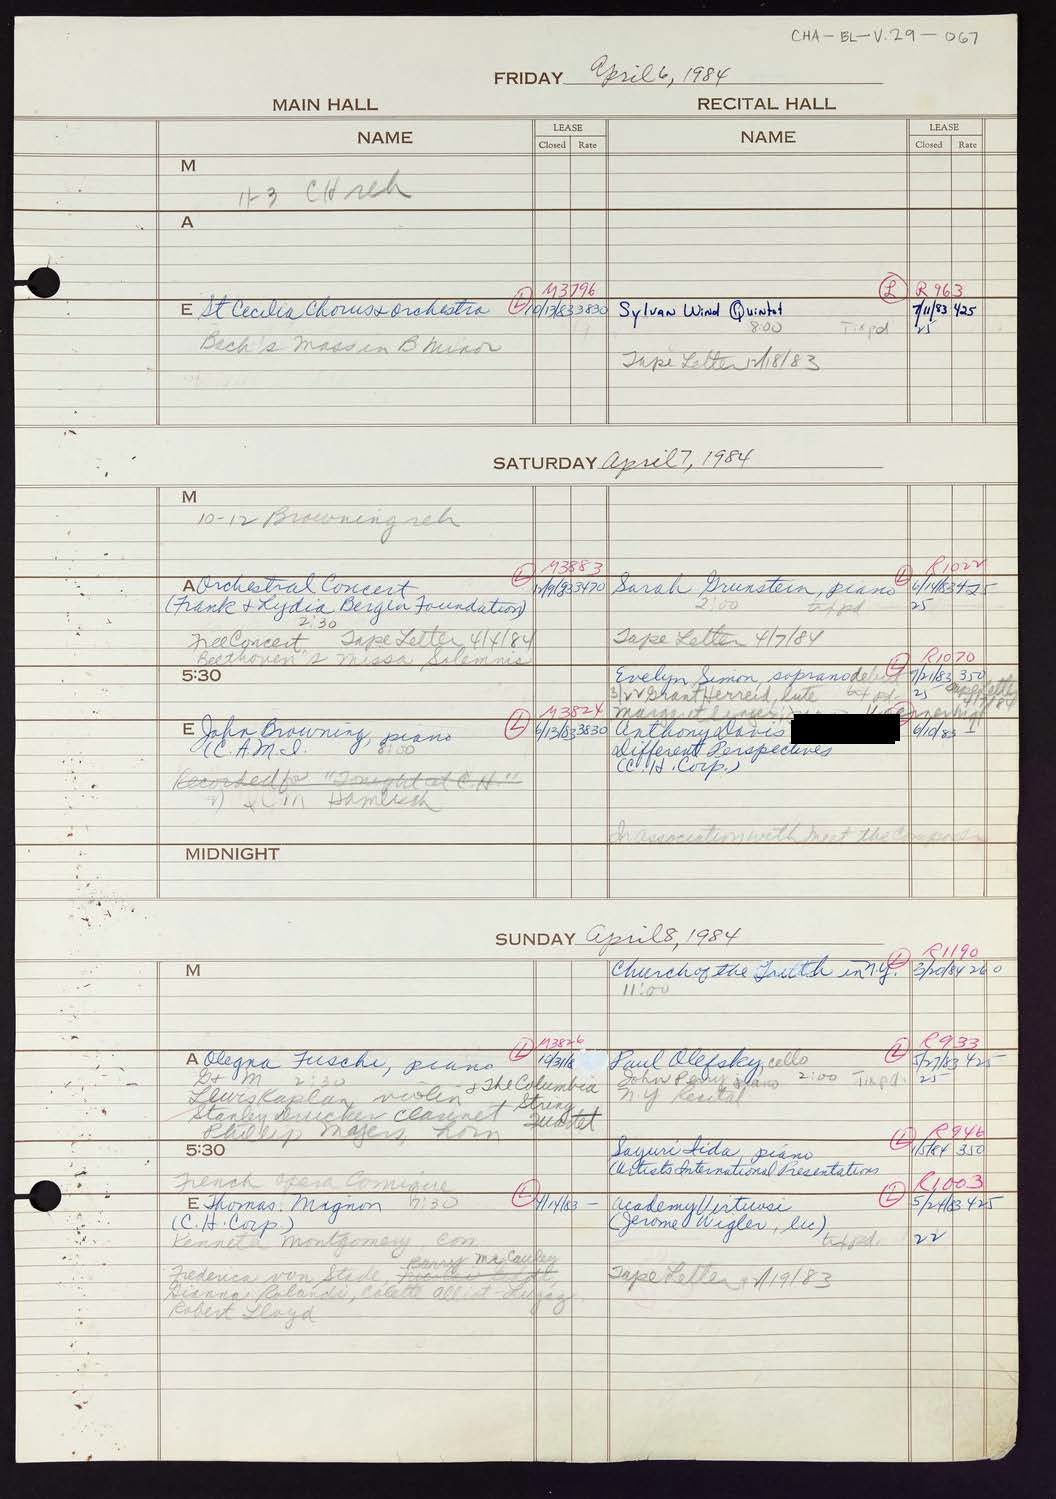 CHA-EL-V.29-067
FRIDAY April 6, 1984
MAIN HALL
RECITAL HALL
NAME
LEASE
Closed Rate
NAME
LEASE
Closed Rate
M
11-3 CH reh
A
M3796
R963
E St Cecilia Chorus & orchestra L 10/13/83 3830
Sylvan Wind Quintet L 7/11/83 425
8:00 25
Bach's Mass in B Minor
Tape Letter 12/18/83
SATURDAY April 7, 1984
M
10-12 Browning reh
M3883
R1022
A Orchestral Concert L 12/9/83 3470
Sarah Grunstein, piano L 6/14/83 425
(Frank & Lydia Bergen Foundation)
2:00 txt pd 25
2:30
Free Concert Tape Letter 4/4/84
Tape Letter 4/7/84
Beethoven's Missa Solemnis
R1070
5:30
Evelyn Simon, soprano debut L 7/21/83 350
Grant Herreid, lute txt pd. 25
M3824
E John Browning, piano L 6/13/83 3830
Anthony Davis 6/10/83
(C.A.M.I.) 8:00
Different Perspectives
(C.H. Corp.)
Recorded for "Tonight at C.H."
Hamlisch
In association with Meet the Composer
MIDNIGHT
SUNDAY April 8, 1984
R1190
M
Church of the Truth in N.Y. L 3/20/84 260
11:00
M3826
R933
A Olegna Fuschi, piano L 10/31/8
Paul Olefsky, cello L 5/27/83 425
G & M 2:30 & The Columbia
John Perry piano 2:00 25
Lewis Kaplan violin String
N.Y. Recital
Stanley Drucker clarinet Quartet
Phillip Myers, horn
R946
5:30
Sayuri Iida, piano L 1/5/84 350
(Artists International Presentations
French Opera Comique
R1003
E Thomas: Mignon 7:30 L 4/14/83 -
Academy Virtuosi L 5/24/83 425
(C.H. Corp.)
(Jerome Wigler, lic)
Kenneth Montgomery con
txt pd. 22
Barry McCauley
Frederica von Stade,
Tape Letter
Gianna Rolandi, Colette Alliot-Lugaz
Robert Lloyd